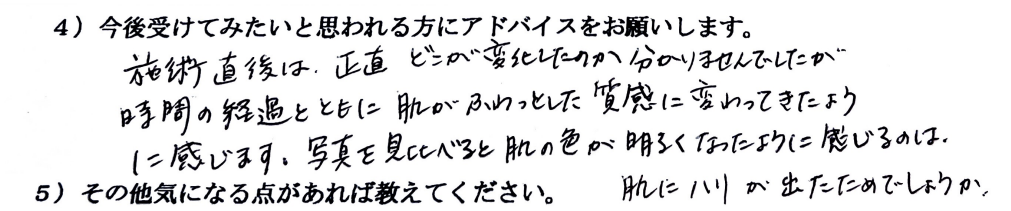 4）今後受けてみたいと思われる方にアドバイスをお願いします。
施術直後は、正直 どこが変化したのか 分かりませんでしたが
時間の経過とともに 肌が ふわっとした 質感に変わってきたよう
に感じます。写真を見比べると肌の色が 明るくなったように感じるのは、
肌に ハリ が 出たためでしょうか、
5）その他気になる点があれば教えてください。